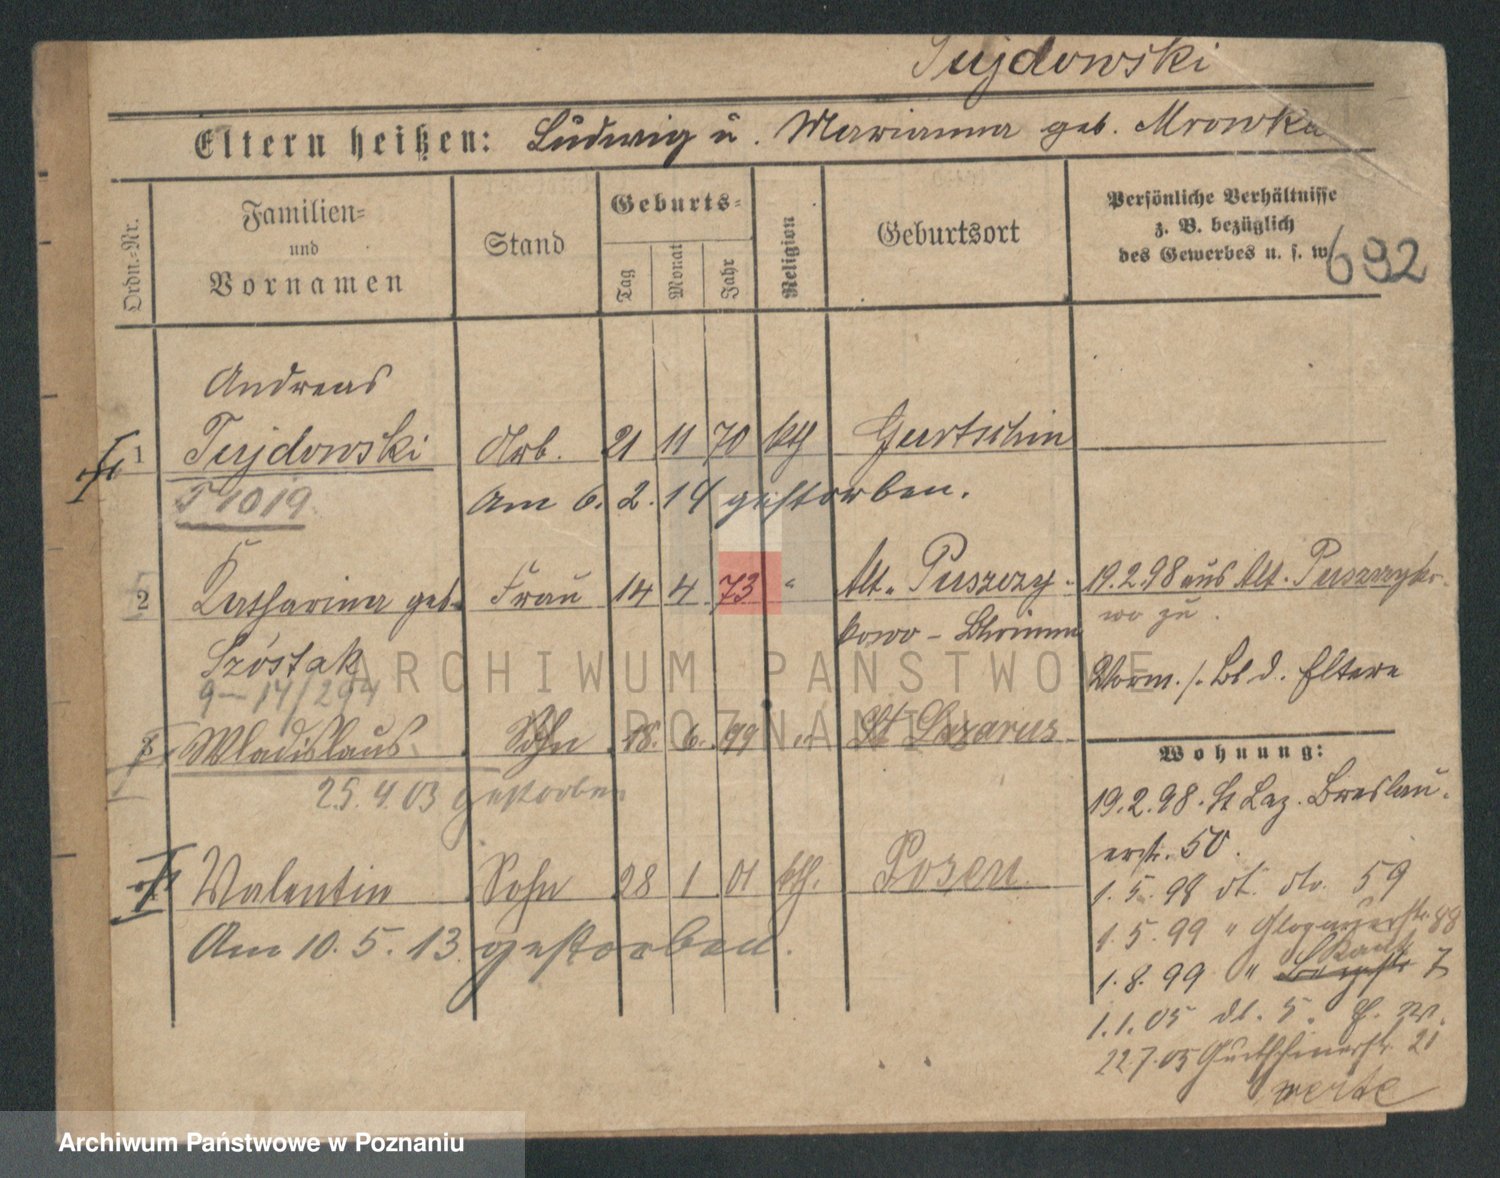 Tujdowski
Eltern heißen: Ludwig u. Marianna geb. Mrowka
Ordn.-Nr.
Familien-
und
Vornamen
Stand
Geburts-
Tag
Monat
Jahr
Religion
Geburtsort
Persönliche Verhältnisse
z. B. bezüglich
des Gewerbes u. s. w.
692
Andreas
1 Tujdowski Arb. 21 11 70 kth Gurtschin
T 1019 Am 6. 2. 14 gestorben.
2 Katharina geb. Frau 14 4 73 " Alt-Puszczy-
kowo - Schrimm
Szóstak
9-14/294
3 Wladislaus Sohn 18. 6. 99 " St Lazarus
25.4.03 gestorben
Valentin Sohn 28 1 01 kth. Posen
Am 10. 5. 13 gestorben.
19.2.98 aus Alt-Puszczyko-
wo zu.
d. Eltern
Wohnung:
19.2.98. St Laz. Breslau-
erstr. 50.
1.5.98 dt. do. 59
1.5.99 " Glogauerstr. 88
1.8.99 " 7
1.1.05 dt. 5.
22.7.05 Gurtschinerstr. 21
ARCHIWUM PAŃSTWOWE
W POZNANIU
Archiwum Państwowe w Poznaniu